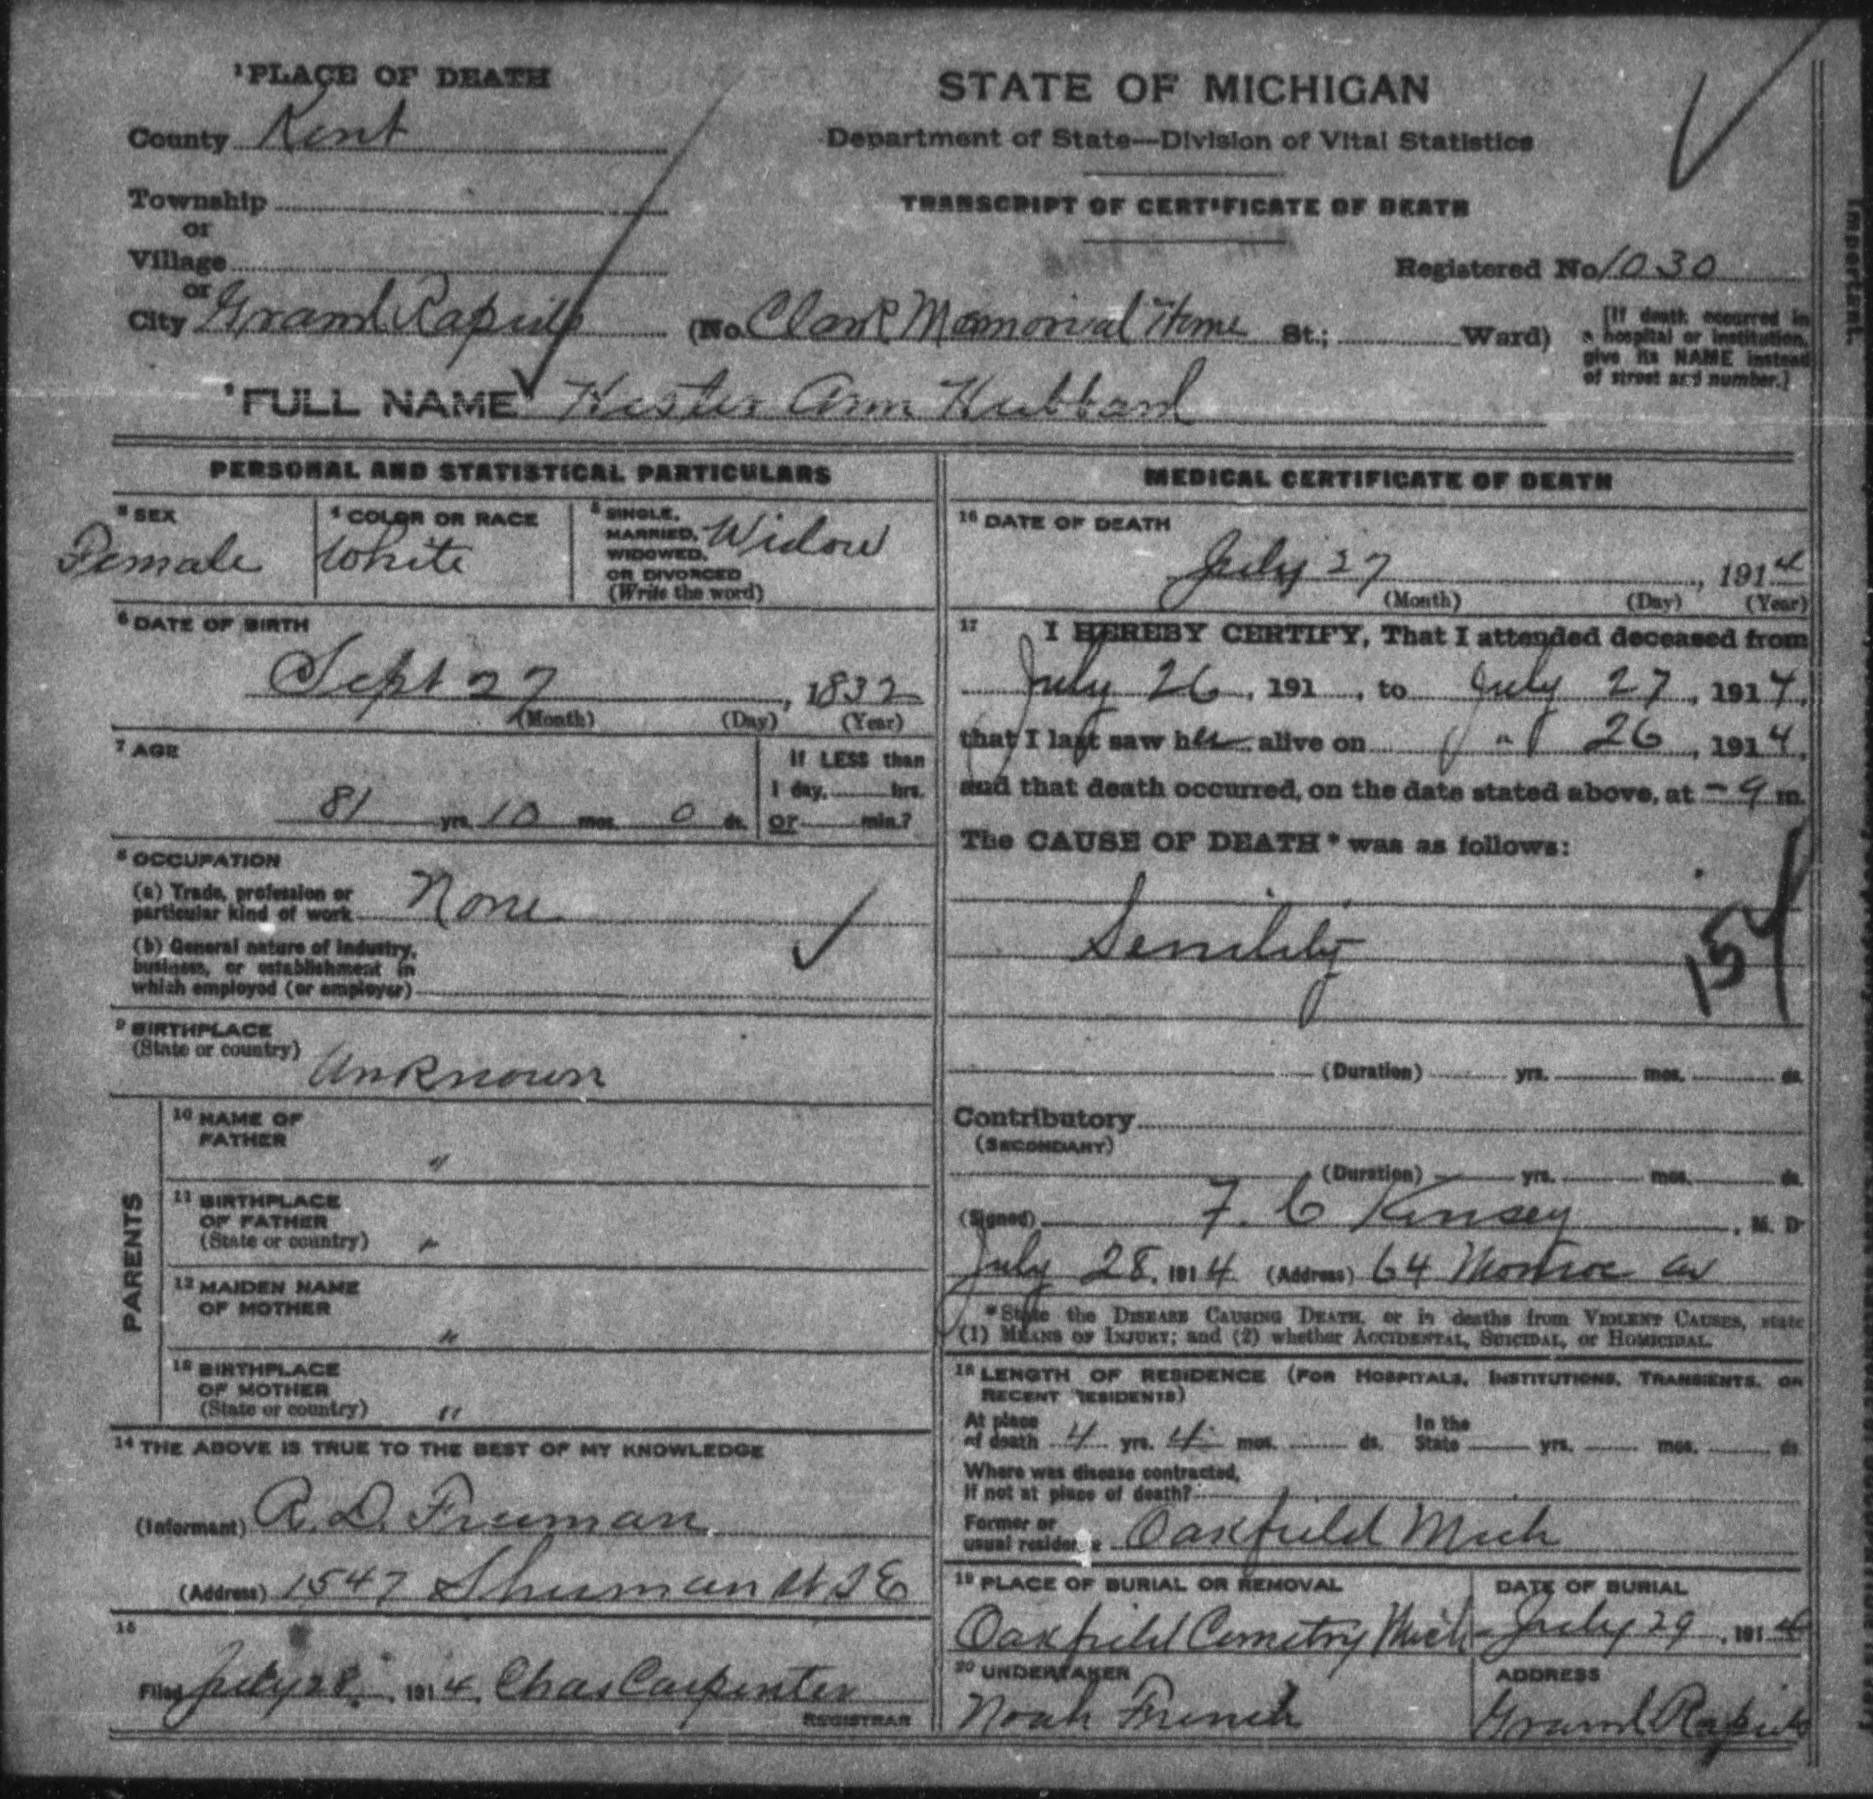 ¹PLACE OF DEATH
County Kent
Township
or
Village
or
City Grand Rapids
STATE OF MICHIGAN
Department of State—Division of Vital Statistics
TRANSCRIPT OF CERTIFICATE OF DEATH
Registered No 1030
(No. Clark Memorial Home St.; Ward)
[If death occurred in
a hospital or institution,
give its NAME instead
of street and number.]
Important.
²FULL NAME Hester Ann Hubbard
PERSONAL AND STATISTICAL PARTICULARS
³ SEX
Female
⁴ COLOR OR RACE
White
⁵ SINGLE,
MARRIED,
WIDOWED,
OR DIVORCED
(Write the word)
Widow
⁶ DATE OF BIRTH
Sept 27, 1832
(Month) (Day) (Year)
⁷ AGE
81 yrs. 10 mos. 0 ds.
If LESS than
1 day, hrs.
or min.?
⁸ OCCUPATION
(a) Trade, profession or
particular kind of work None
(b) General nature of industry,
business, or establishment in
which employed (or employer)
⁹ BIRTHPLACE
(State or country)
Unknown
PARENTS
¹⁰ NAME OF
FATHER
"
¹¹ BIRTHPLACE
OF FATHER
(State or country) "
¹² MAIDEN NAME
OF MOTHER
"
¹³ BIRTHPLACE
OF MOTHER
(State or country) "
¹⁴ THE ABOVE IS TRUE TO THE BEST OF MY KNOWLEDGE
(Informant) R. D. Freeman
(Address) 1547 Sherman St S E
¹⁵
Filed July 28, 1914, Chas Carpenter
REGISTRAR
MEDICAL CERTIFICATE OF DEATH
¹⁶ DATE OF DEATH
July 27, 1914
(Month) (Day) (Year)
¹⁷ I HEREBY CERTIFY, That I attended deceased from
July 26, 191 , to July 27, 1914,
that I last saw her alive on " 26, 1914,
and that death occurred, on the date stated above, at - 9 m.
The CAUSE OF DEATH* was as follows:
Senility
154
(Duration) yrs. mos. ds.
Contributory
(SECONDARY)
(Duration) yrs. mos. ds.
(Signed) F. C Kinsey, M. D
July 28, 1914 (Address) 64 Monroe av
*State the DISEASE CAUSING DEATH, or in deaths from VIOLENT CAUSES, state
(1) MEANS OF INJURY; and (2) whether ACCIDENTAL, SUICIDAL, or HOMICIDAL.
¹⁸ LENGTH OF RESIDENCE (FOR HOSPITALS, INSTITUTIONS, TRANSIENTS, OR
RECENT RESIDENTS)
At place
of death 4 yrs. 4 mos. ds.
In the
State yrs. mos. ds.
Where was disease contracted,
If not at place of death?
Former or
usual residence Oakfield Mich
¹⁹ PLACE OF BURIAL OR REMOVAL
Oakfield Cemetry Mich
DATE OF BURIAL
July 29, 1914
²⁰ UNDERTAKER
Noah French
ADDRESS
Grand Rapids